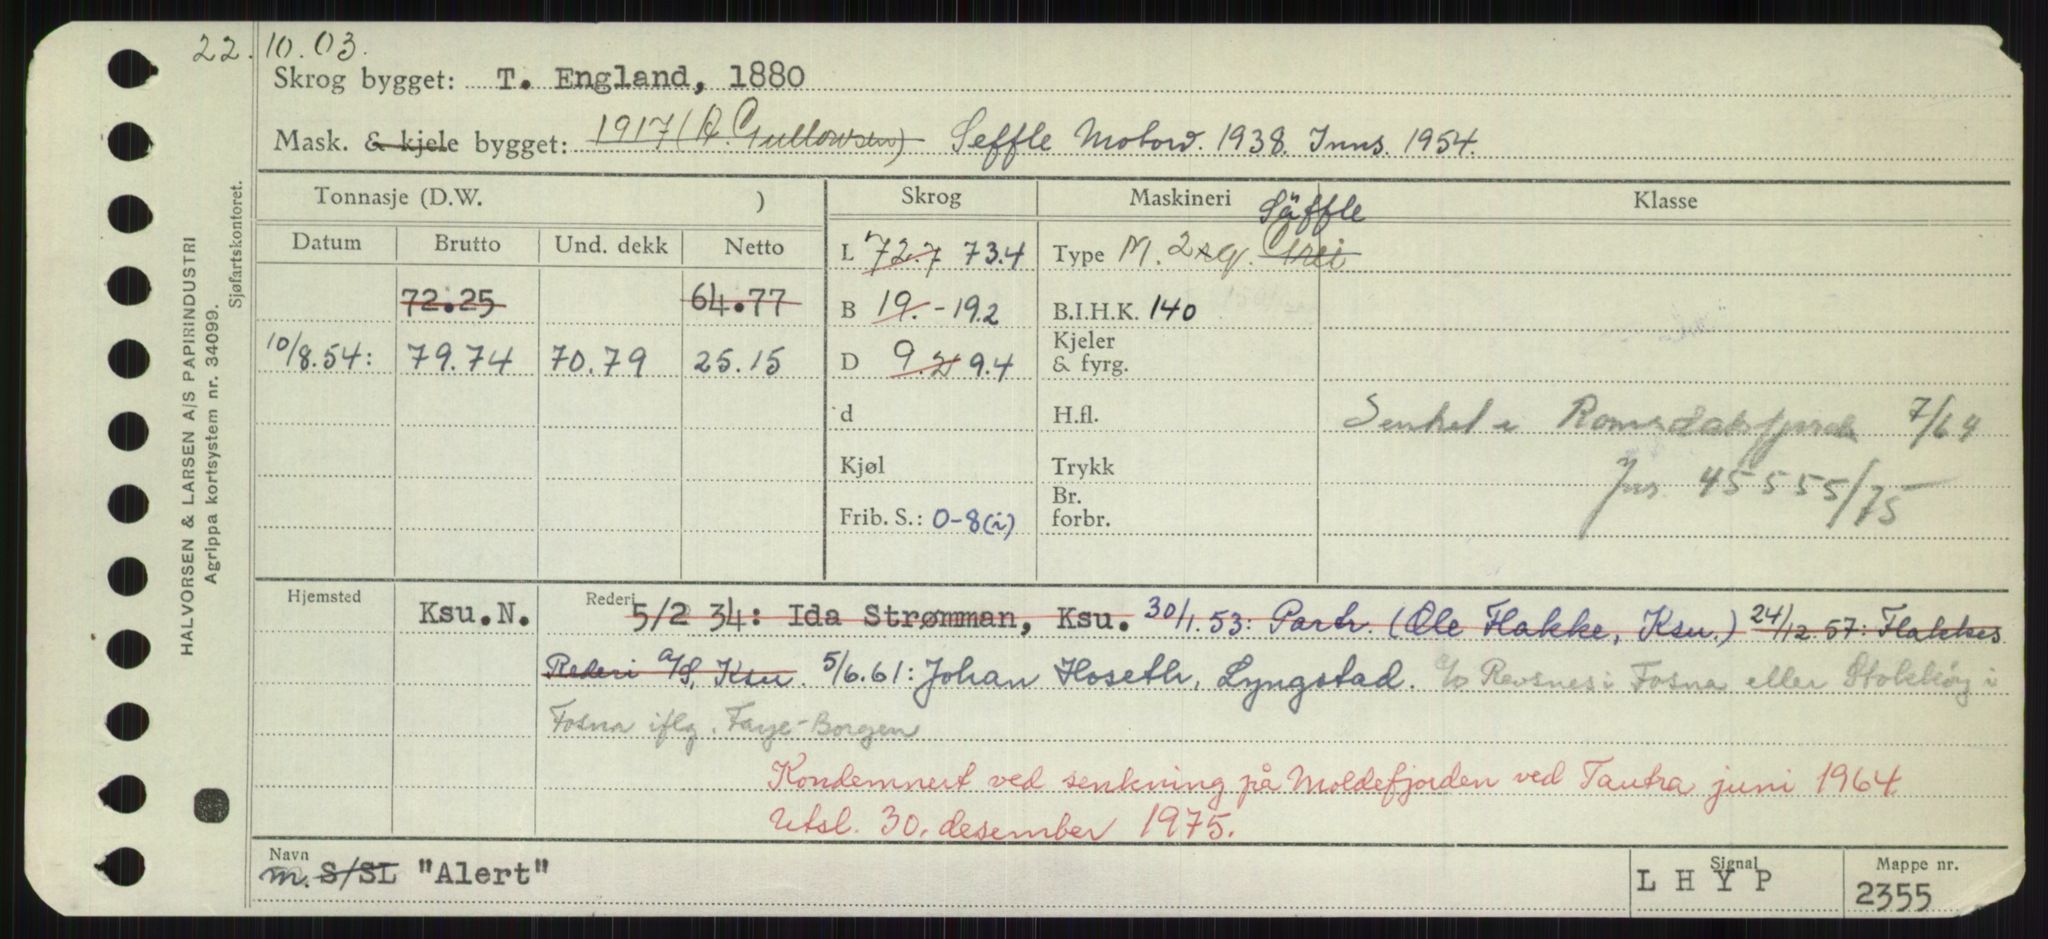 22.10.03.
Skrog bygget: T. England, 1880
Mask. & kjele bygget: 1917 (A. Gullowsen) Seffle Motorv. 1938. Inns. 1954.
Tonnasje (D.W. ) Skrog Maskineri Klasse
Säffle
Datum Brutto Und. dekk Netto L 72.7 73.4 Type M. 2sg. Grei
72.25 64.77 B 19.- 19.2 B.I.H.K. 140
10/8.54: 79.74 70.79 25.15 D 9.2 9.4 Kjeler & fyrg.
d H.fl. Senket i Romsdalsfjorden 7/64
Kjøl Trykk Jnr. 45555/75
Frib. S.: 0-8(i) Br. forbr.
Hjemsted Ksu.N. Rederi 5/2 34: Ida Strømman, Ksu. 30/1.53: Partr. (Ole Flakke, Ksu.) 24/12 57: Flakkes
Rederi A/S, Ksu. 5/6.61: Johan Hoseth, Lyngstad. c/o Revsnes i Fosna eller Stokkøy i
Fosna iflg. Faye-Borgen
Kondemnert ved senkning på Moldefjorden ved Tautra juni 1964
Utsl. 30. desember 1975.
Navn Signal Mappe nr.
m. S/SL "Alert" L H Y P 2355
HALVORSEN & LARSEN A/S PAPIRINDUSTRI
Agrippa kortsystem nr. 34099.
Sjøfartskontoret.